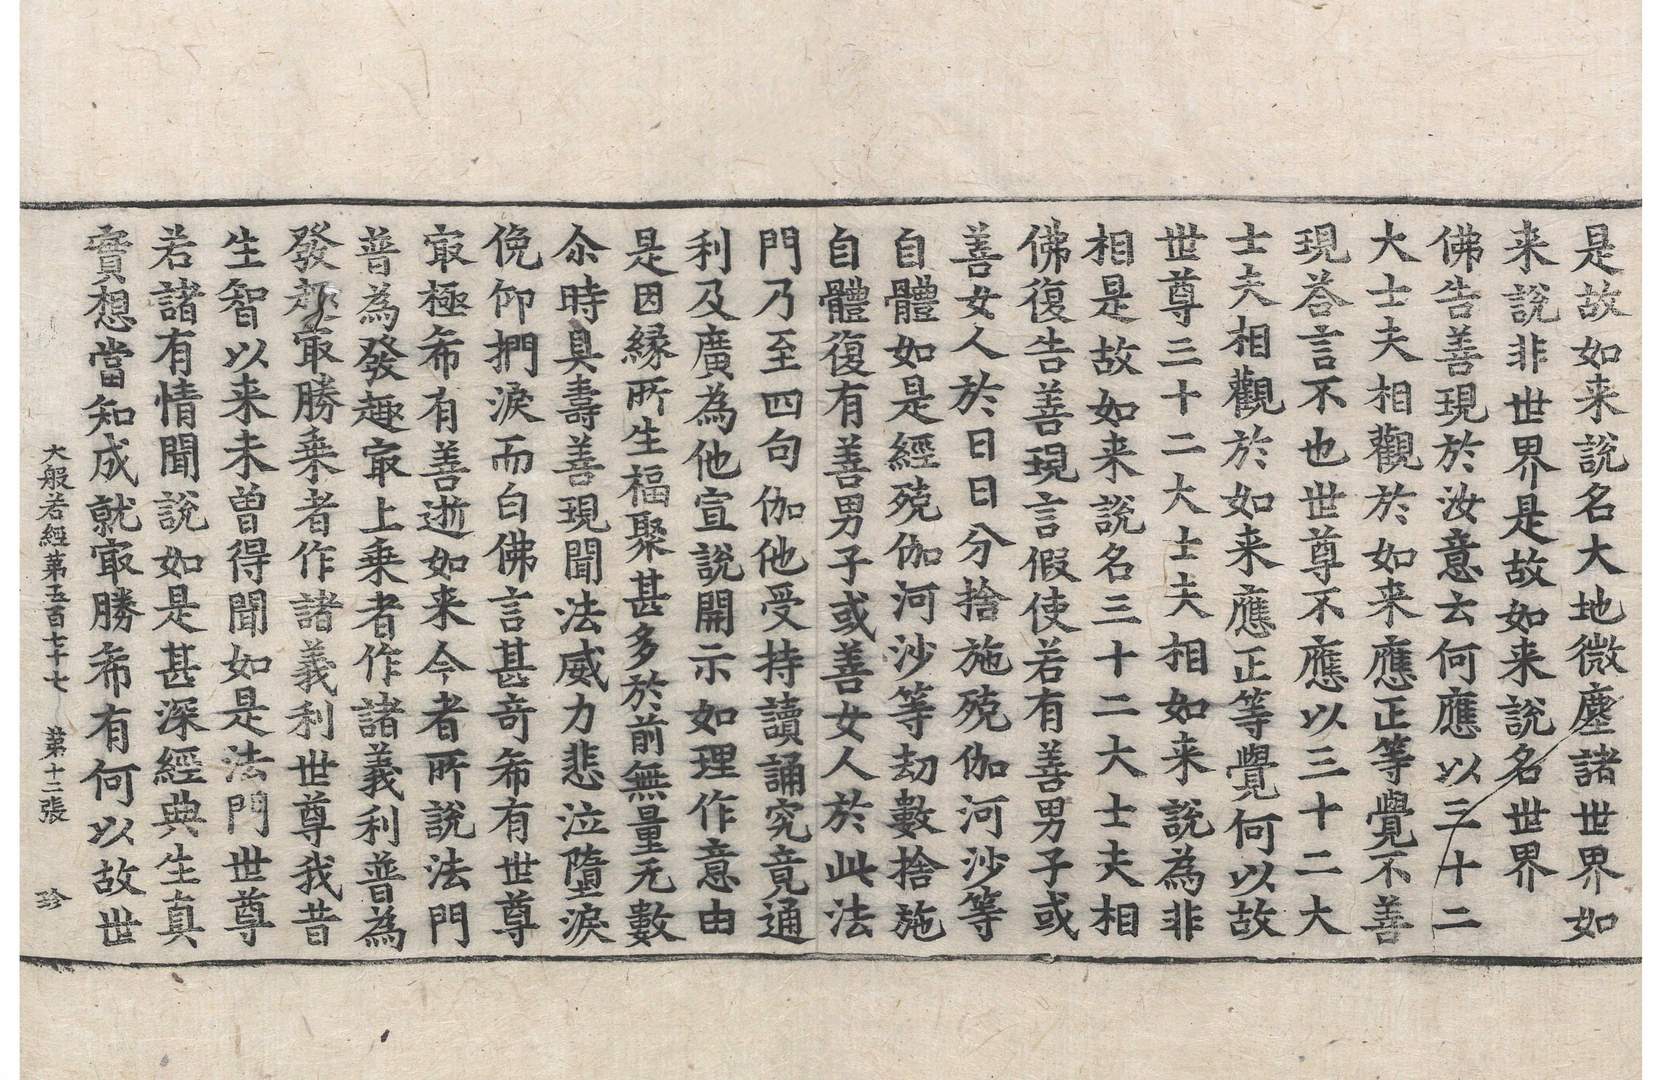 是故如来說名大地微塵諸世界如
来說非世界是故如来說名世界
佛告善現於汝意云何應以三十二
大士夫相觀於如来應正等覺不善
現荅言不也世尊不應以三十二大
士夫相觀於如来應正等覺何以故
世尊三十二大士夫相如来說為非
相是故如来說名三十二大士夫相
佛復告善現言假使若有善男子或
善女人於日日分捨施殑伽河沙等
自體如是經殑伽河沙等劫數捨施
自體復有善男子或善女人於此法
門乃至四句伽他受持讀誦究竟通
利及廣為他宣說開示如理作意由
是因縁所生福聚甚多於前無量无數
尒時具壽善現聞法威力悲泣墮淚
俛仰捫淚而白佛言甚奇希有世尊
㝡極希有善逝如来今者所說法門
普為發趣㝡上乗者作諸義利普為
發趣㝡勝乗者作諸義利世尊我昔
生智以来未曽得聞如是法門世尊
若諸有情聞說如是甚深經典生真
實想當知成就㝡勝希有何以故世
大般若經第五百七十七 第十二張 珍